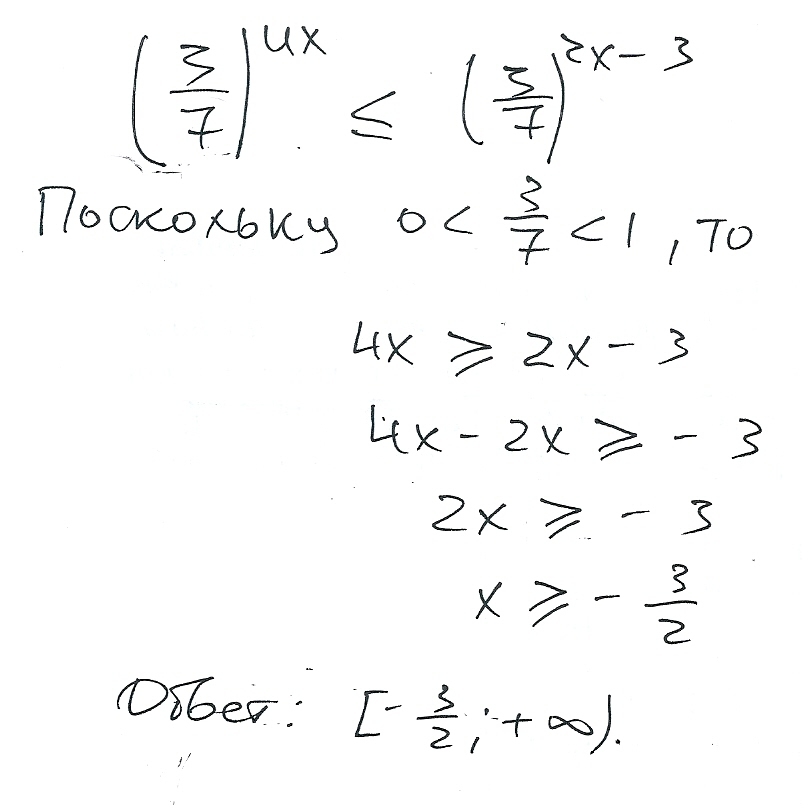 (3/7)^4x ≤ (3/7)^2x - 3
Поскольку 0 < 3/7 < 1, то
4x ⩾ 2x - 3
4x - 2x ⩾ - 3
2x ⩾ - 3
x ⩾ - 3/2
Ответ: [- 3/2; + ∞).